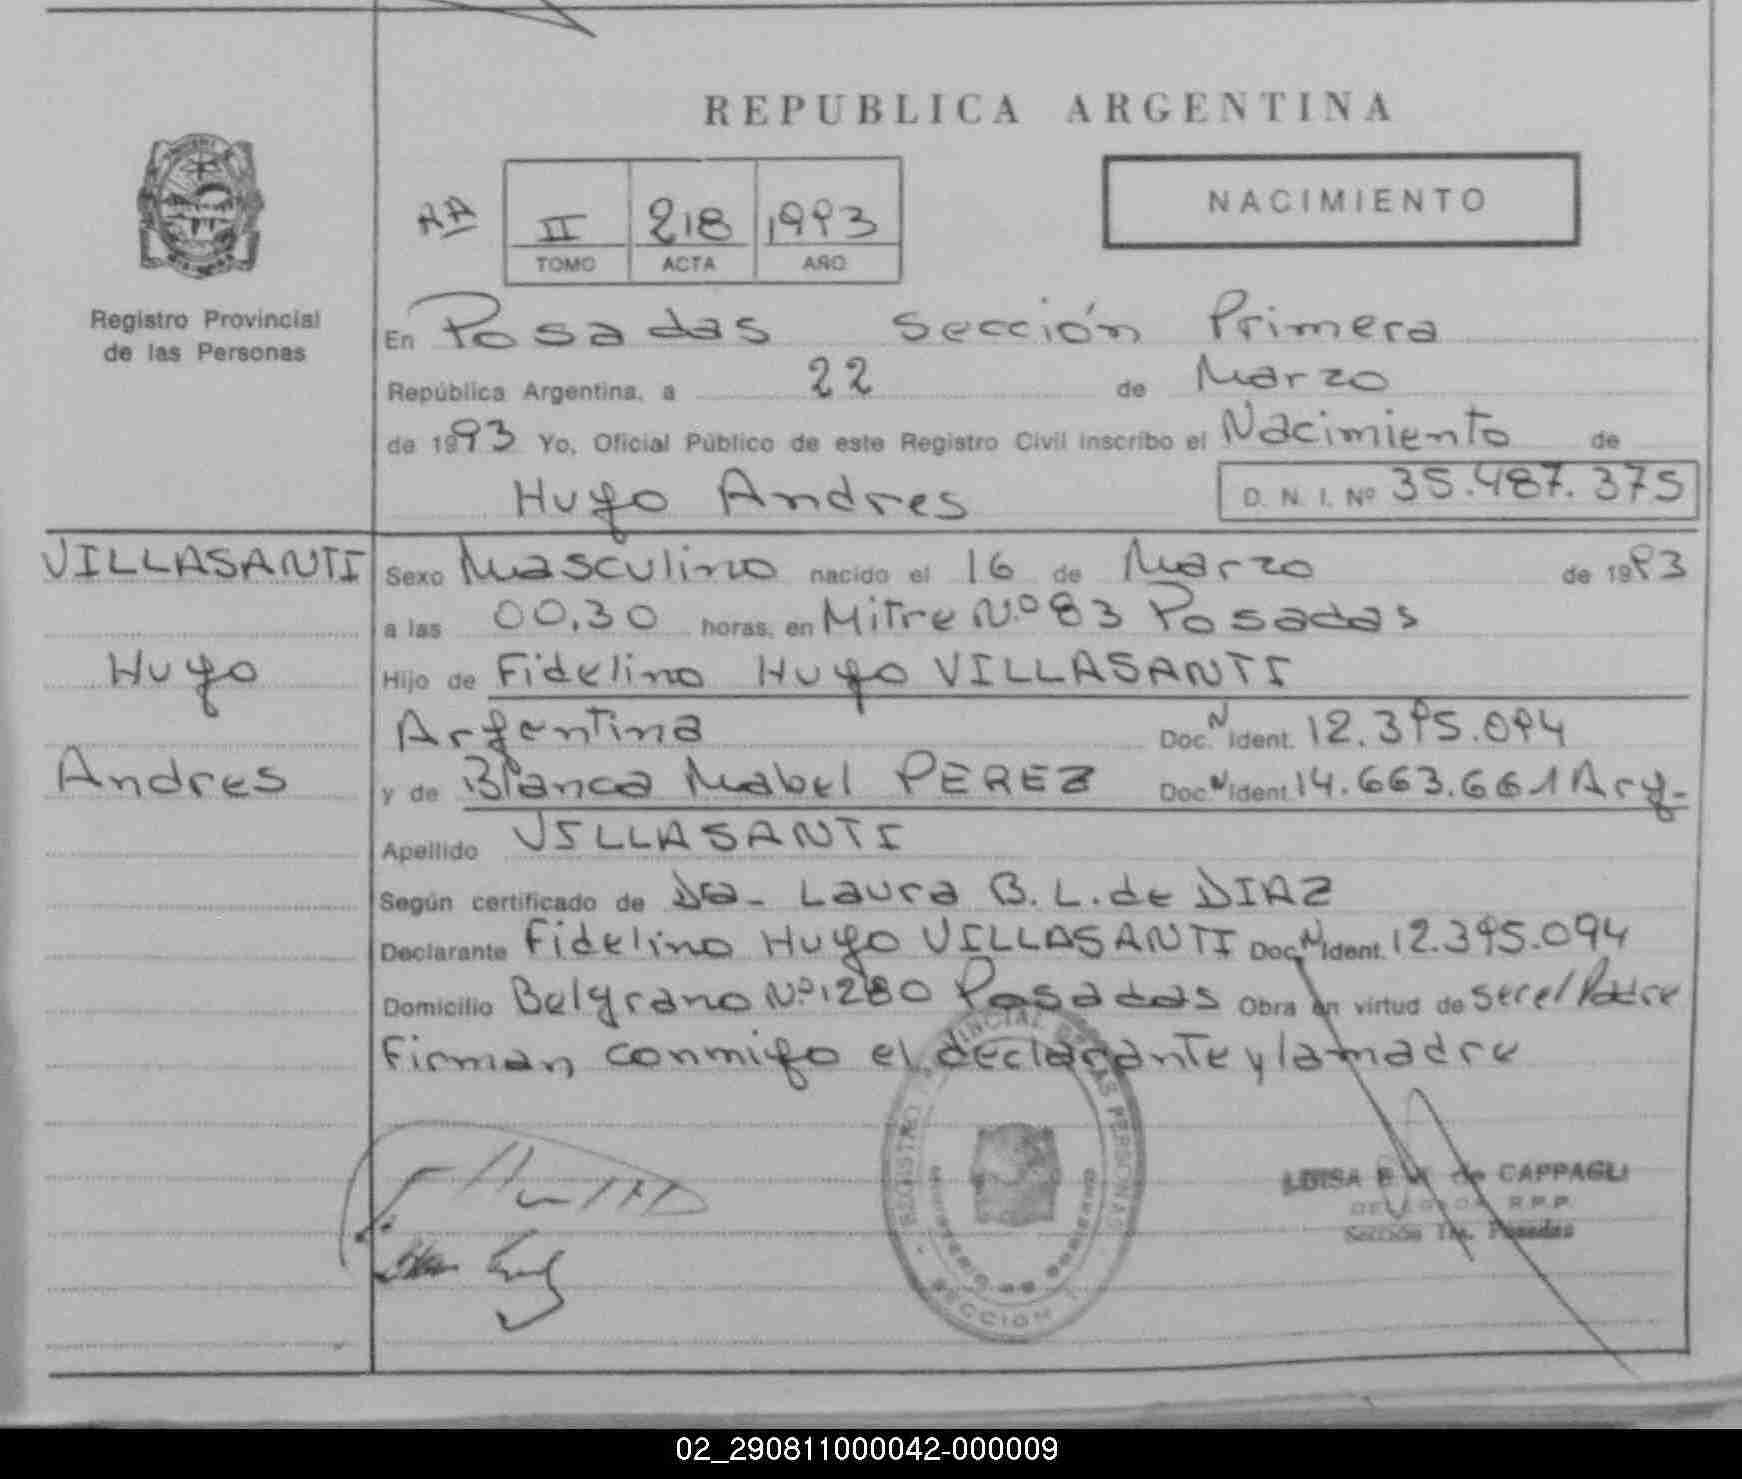 REPUBLICA ARGENTINA
NACIMIENTO
AA II 218 1993
TOMO ACTA AÑO
Registro Provincial
de las Personas
En Posadas Sección Primera
República Argentina, a 22 de Marzo
de 1993 Yo, Oficial Público de este Registro Civil inscribo el Nacimiento de
Hugo Andres D. N. I. Nº 35.487.375
VILLASANTI
Hugo
Andres
Sexo Masculino nacido el 16 de Marzo de 1993
a las 00,30 horas, en Mitre N.º 83 Posadas
Hijo de Fidelino Hugo VILLASANTI
Argentina Doc. N Ident. 12.395.094
y de Blanca Mabel PEREZ Doc. N Ident. 14.663.661 Arg.
Apellido VILLASANTI
Según certificado de Dra. Laura B. L. de DIAZ
Declarante Fidelino Hugo VILLASANTI Doc. N Ident. 12.395.094
Domicilio Belgrano Nº 1280 Posadas Obra en virtud de ser el Padre
Firman conmigo el declarante y la madre
REGISTRO PROVINCIAL DE LAS PERSONAS
MINISTERIO DE GOBIERNO
SECCION 1
LUISA de CAPPAGLI
DELEGADA R.P.P.
Sección 1ra. Posadas
02_290811000042-000009